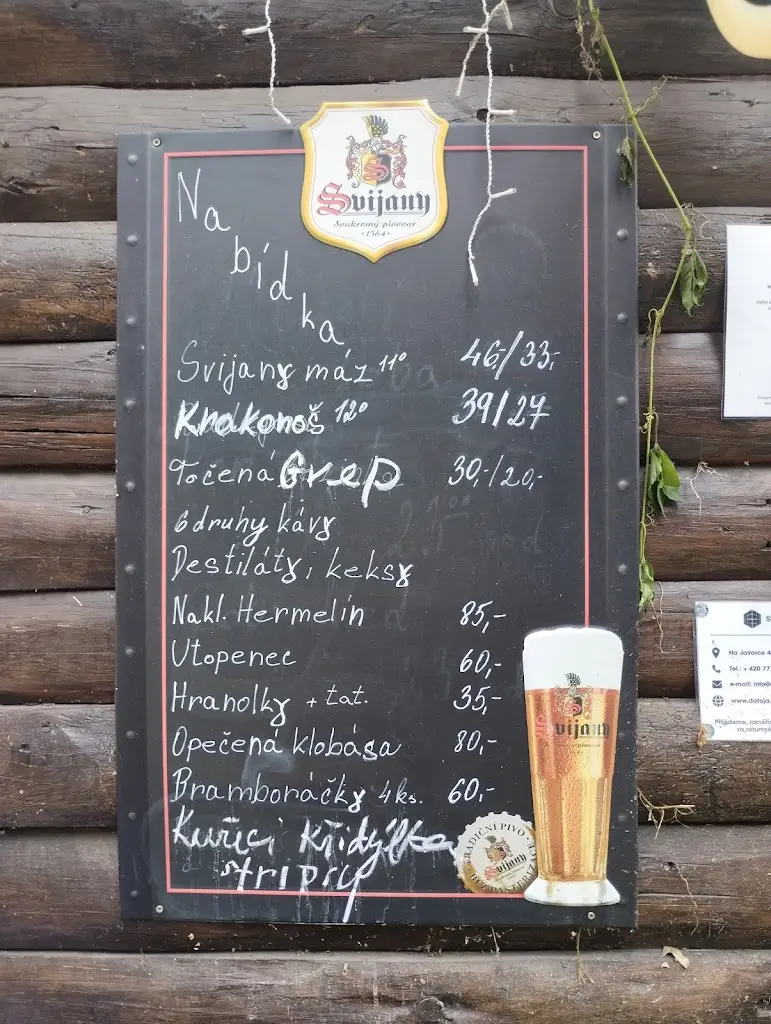 Svijany
Soukromý pivovar
· 1564 ·
Nabídka
Svijany máz 11° 46,/33,-
Krakonoš 12° 39/27
Točená Grep 30,-/20,-
6 druhy kávy
Destiláty, keksy
Nakl. Hermelín 85,-
Utopenec 60,-
Hranolky + tat. 35,-
Opečená klobása 80,-
Bramboráčky 4 ks. 60,-
Kuřecí křidýlka
stripsy
Svijany
TRADIČNÍ PIVO
Svijany
Na Javorce 4
Tel.: +420 77
e-mail: info@
www.datoja
Přijdeme, zaměří